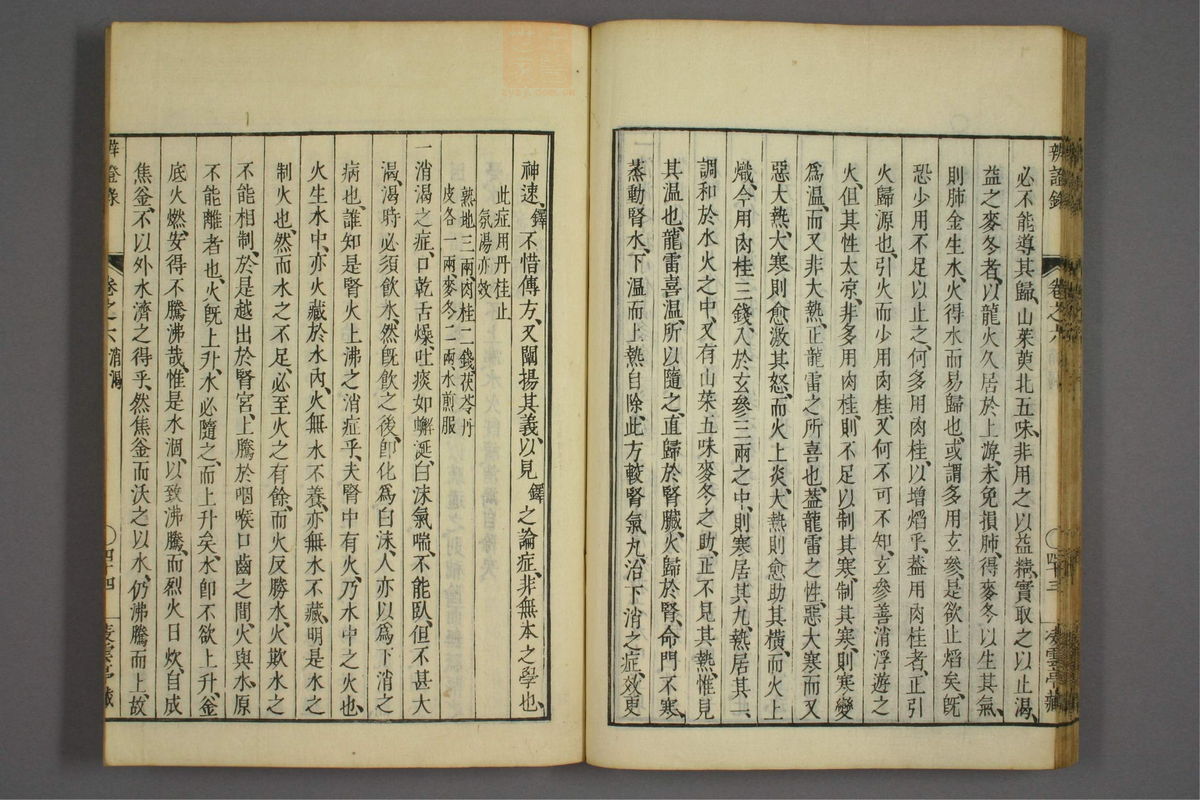 辨證錄
卷之六
四十三
凌雲亭藏
必不能導其歸、山茱萸北五味非用之以益精、實取之以止渴、
益之麥冬者、以龍火久居於上游、未免損肺、得麥冬以生其氣、
則肺金生水、火得水而易歸也、或謂多用玄參、是欲止焰矣、旣
恐少用不足以止之、何多用肉桂、以增焰乎、葢用肉桂者、正引
火歸源也、引火而少用肉桂、又何不可不知、玄參善消浮遊之
火、但其性太凉、非多用肉桂、則不足以制其寒、制其寒、則寒變
爲溫、而又非大熱、正龍雷之所喜也、葢龍雷之性、惡大寒而又
惡大熱、大寒則愈激其怒、而火上炎、大熱則愈助其橫、而火上
熾、今用肉桂三錢、入於玄參三兩之中、則寒居其九、熱居其一、
調和於水火之中、又有山茱五味麥冬之助、正不見其熱、惟見
其溫也、龍雷喜溫、所以隨之、直歸於腎臟、火歸於腎、命門不寒、
蒸動腎水、下溫而上熱自除、此方較腎氣丸、治下消之症、效更
神速、鐸不惜傳方、又闡揚其義、以見 鐸之論症、非無本之學也、
此症用丹桂止
氛湯亦效
熟地三兩、肉桂二錢茯苓丹
皮各一兩、麥冬二兩水煎服
一消渴之症、口乾舌燥、吐痰如蠏涎、白沫氣喘、不能臥、但不甚大
渴、渴時必須飲水、然旣飲之後、卽化爲白沫、人亦以爲下消之
病也、誰知是腎火上沸之消症乎、夫腎中有火、乃水中之火也、
火生水中、亦火藏於水內、火無水不養、亦無水不藏、明是水之
制火也、然而水之不足、必至火之有餘、而火反勝水、火欺水之
不能相制、於是越出於腎宮、上騰於咽喉口齒之間、火與水、原
不能離者也、火旣上升、水必隨之、而上升矣、水卽不欲上升、釜
底火燃、安得不騰沸哉、惟是水涸、以致沸騰、而烈火日炊、自成
焦釜、不以外水濟之得乎、然焦釜而沃之以水、仍沸騰而上、故
辨證錄
卷之六 消渴
四十四
凌雲亭藏